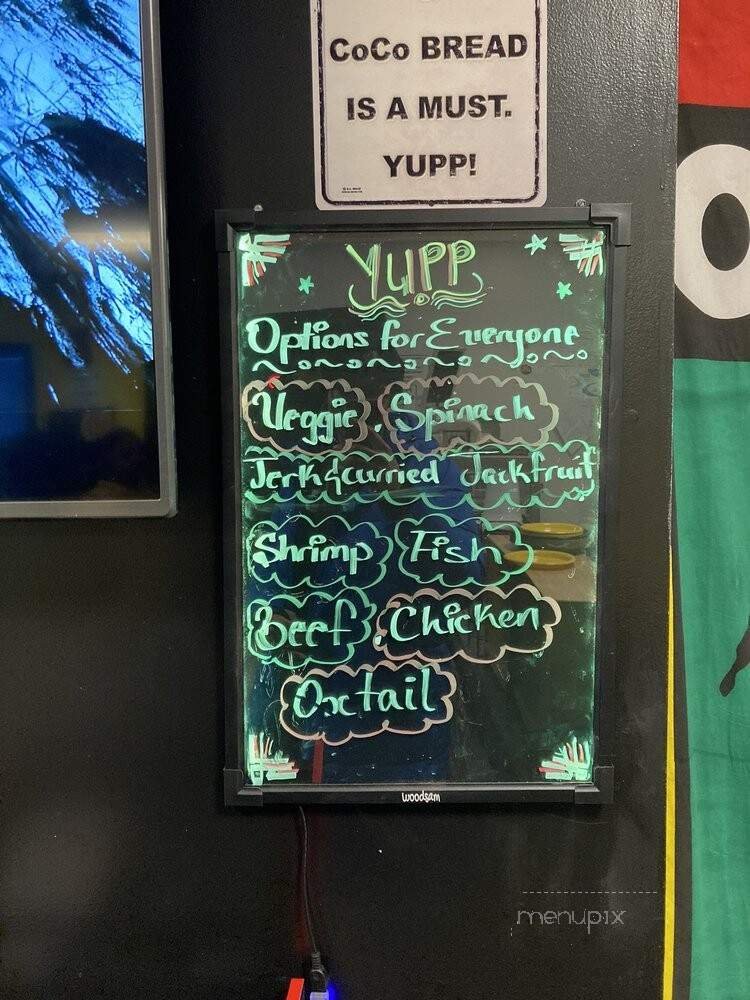 CoCo BREAD
IS A MUST.
YUPP!
YUPP
Options for Everyone
Veggie, Spinach
Jerk & curried Jackfruit
Shrimp Fish
Beef, Chicken
Oxtail
woodsam
O
menupix